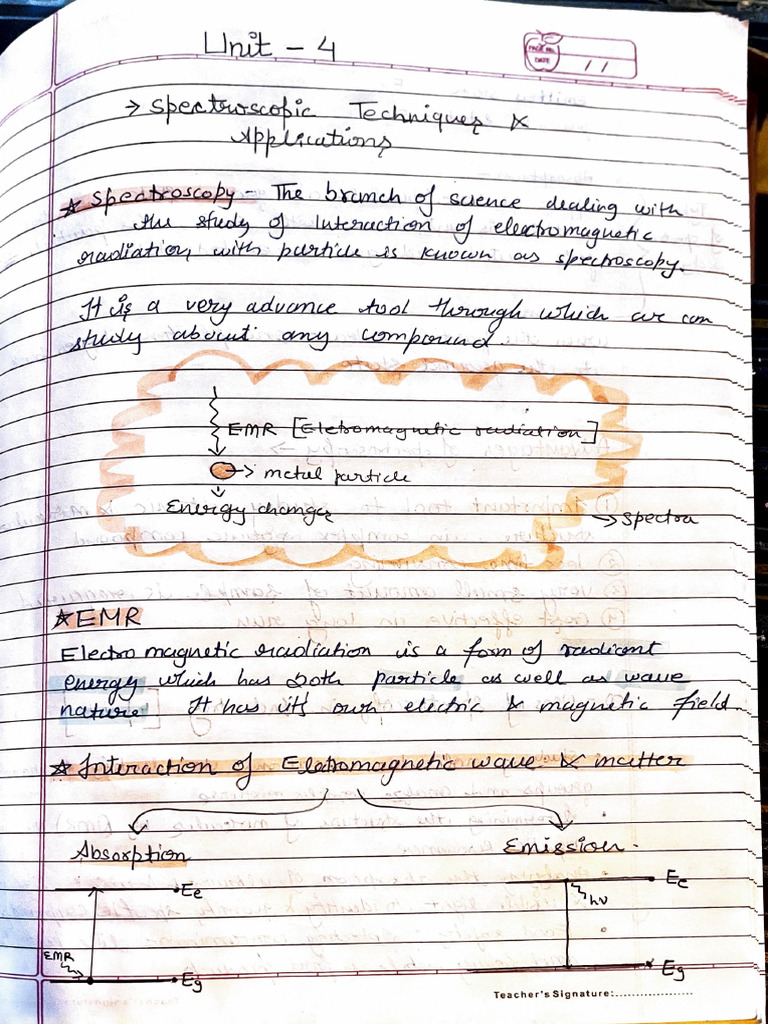 Unit - 4
PAGE NO.
DATE
/ /
→ Spectroscopic Techniques &
Applications
★ Spectroscopy - The branch of science dealing with
the study of Interaction of electromagnetic
radiation with particle is known as spectroscopy.
It is a very advance tool through which we can
study about any compound.
EMR [Eletromagnetic radiation]
→ metal particle
Energy changes
→ Spectra
★ EMR
Electro magnetic radiation is a form of radiant
energy which has both particle as well as wave
nature. It has it's own electric & magnetic field.
★ Interaction of Eletromagnetic wave & matter
Absorption
Emission.
Ee
Ee
hν
EMR
Eg
Eg
Teacher's Signature:....................